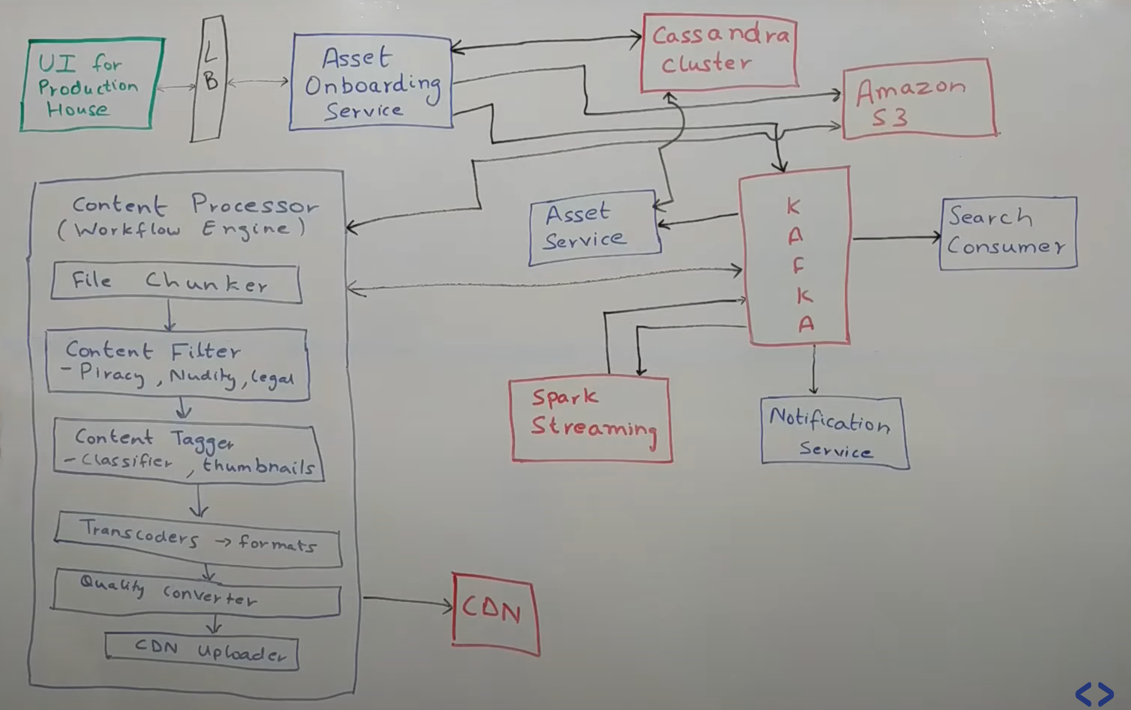 UI for
Production
House
L
B
Asset
Onboarding
Service
Cassandra
Cluster
Amazon
S3
Content Processor
(Workflow Engine)
File Chunker
Content Filter
- Piracy, Nudity, Legal
Content Tagger
- Classifier, thumbnails
Transcoders → formats
Quality Converter
CDN Uploader
Asset
Service
K
A
F
K
A
Search
Consumer
Spark
Streaming
Notification
Service
CDN
<>